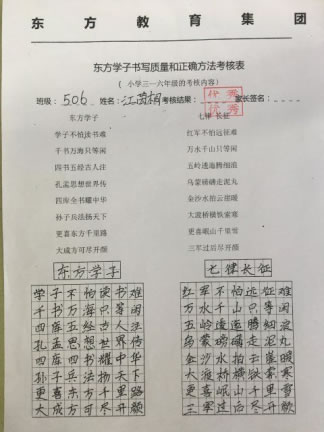 东方教育集团
东方学子书写质量和正确方法考核表
（小学三—六年级的考核内容）
班级：506 姓名：江 考核结果：优秀 家长签名：
东方学子
学子不怕读书难
千书万海只等闲
四书五经古人注
孔孟思想世界传
四库全书耀中华
孙子兵法扬天下
更喜东方千里路
大成方可尽开颜
七律 长征
红军不怕远征难
万水千山只等闲
五岭逶迤腾细浪
乌蒙磅礴走泥丸
金沙水拍云崖暖
大渡桥横铁索寒
更喜岷山千里雪
三军过后尽开颜
东方学子
学子不怕读书难
千书万海只等闲
四库五经古人法
孔孟思想世界传
四库四书耀中华
孙子兵法扬天下
更喜东方千里路
大成方可尽开颜
七律长征
红军不怕远征难
万水千山只等闲
五岭逶迤腾细浪
乌蒙磅礴走泥丸
金沙水拍云崖暖
大渡桥横铁索寒
更喜岷山千里雪
三军过后尽开颜